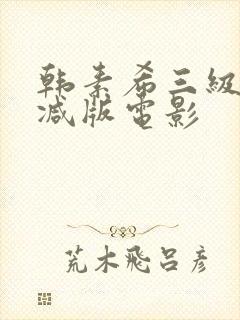 韩素希三級
减版電影
荒木飛呂彦